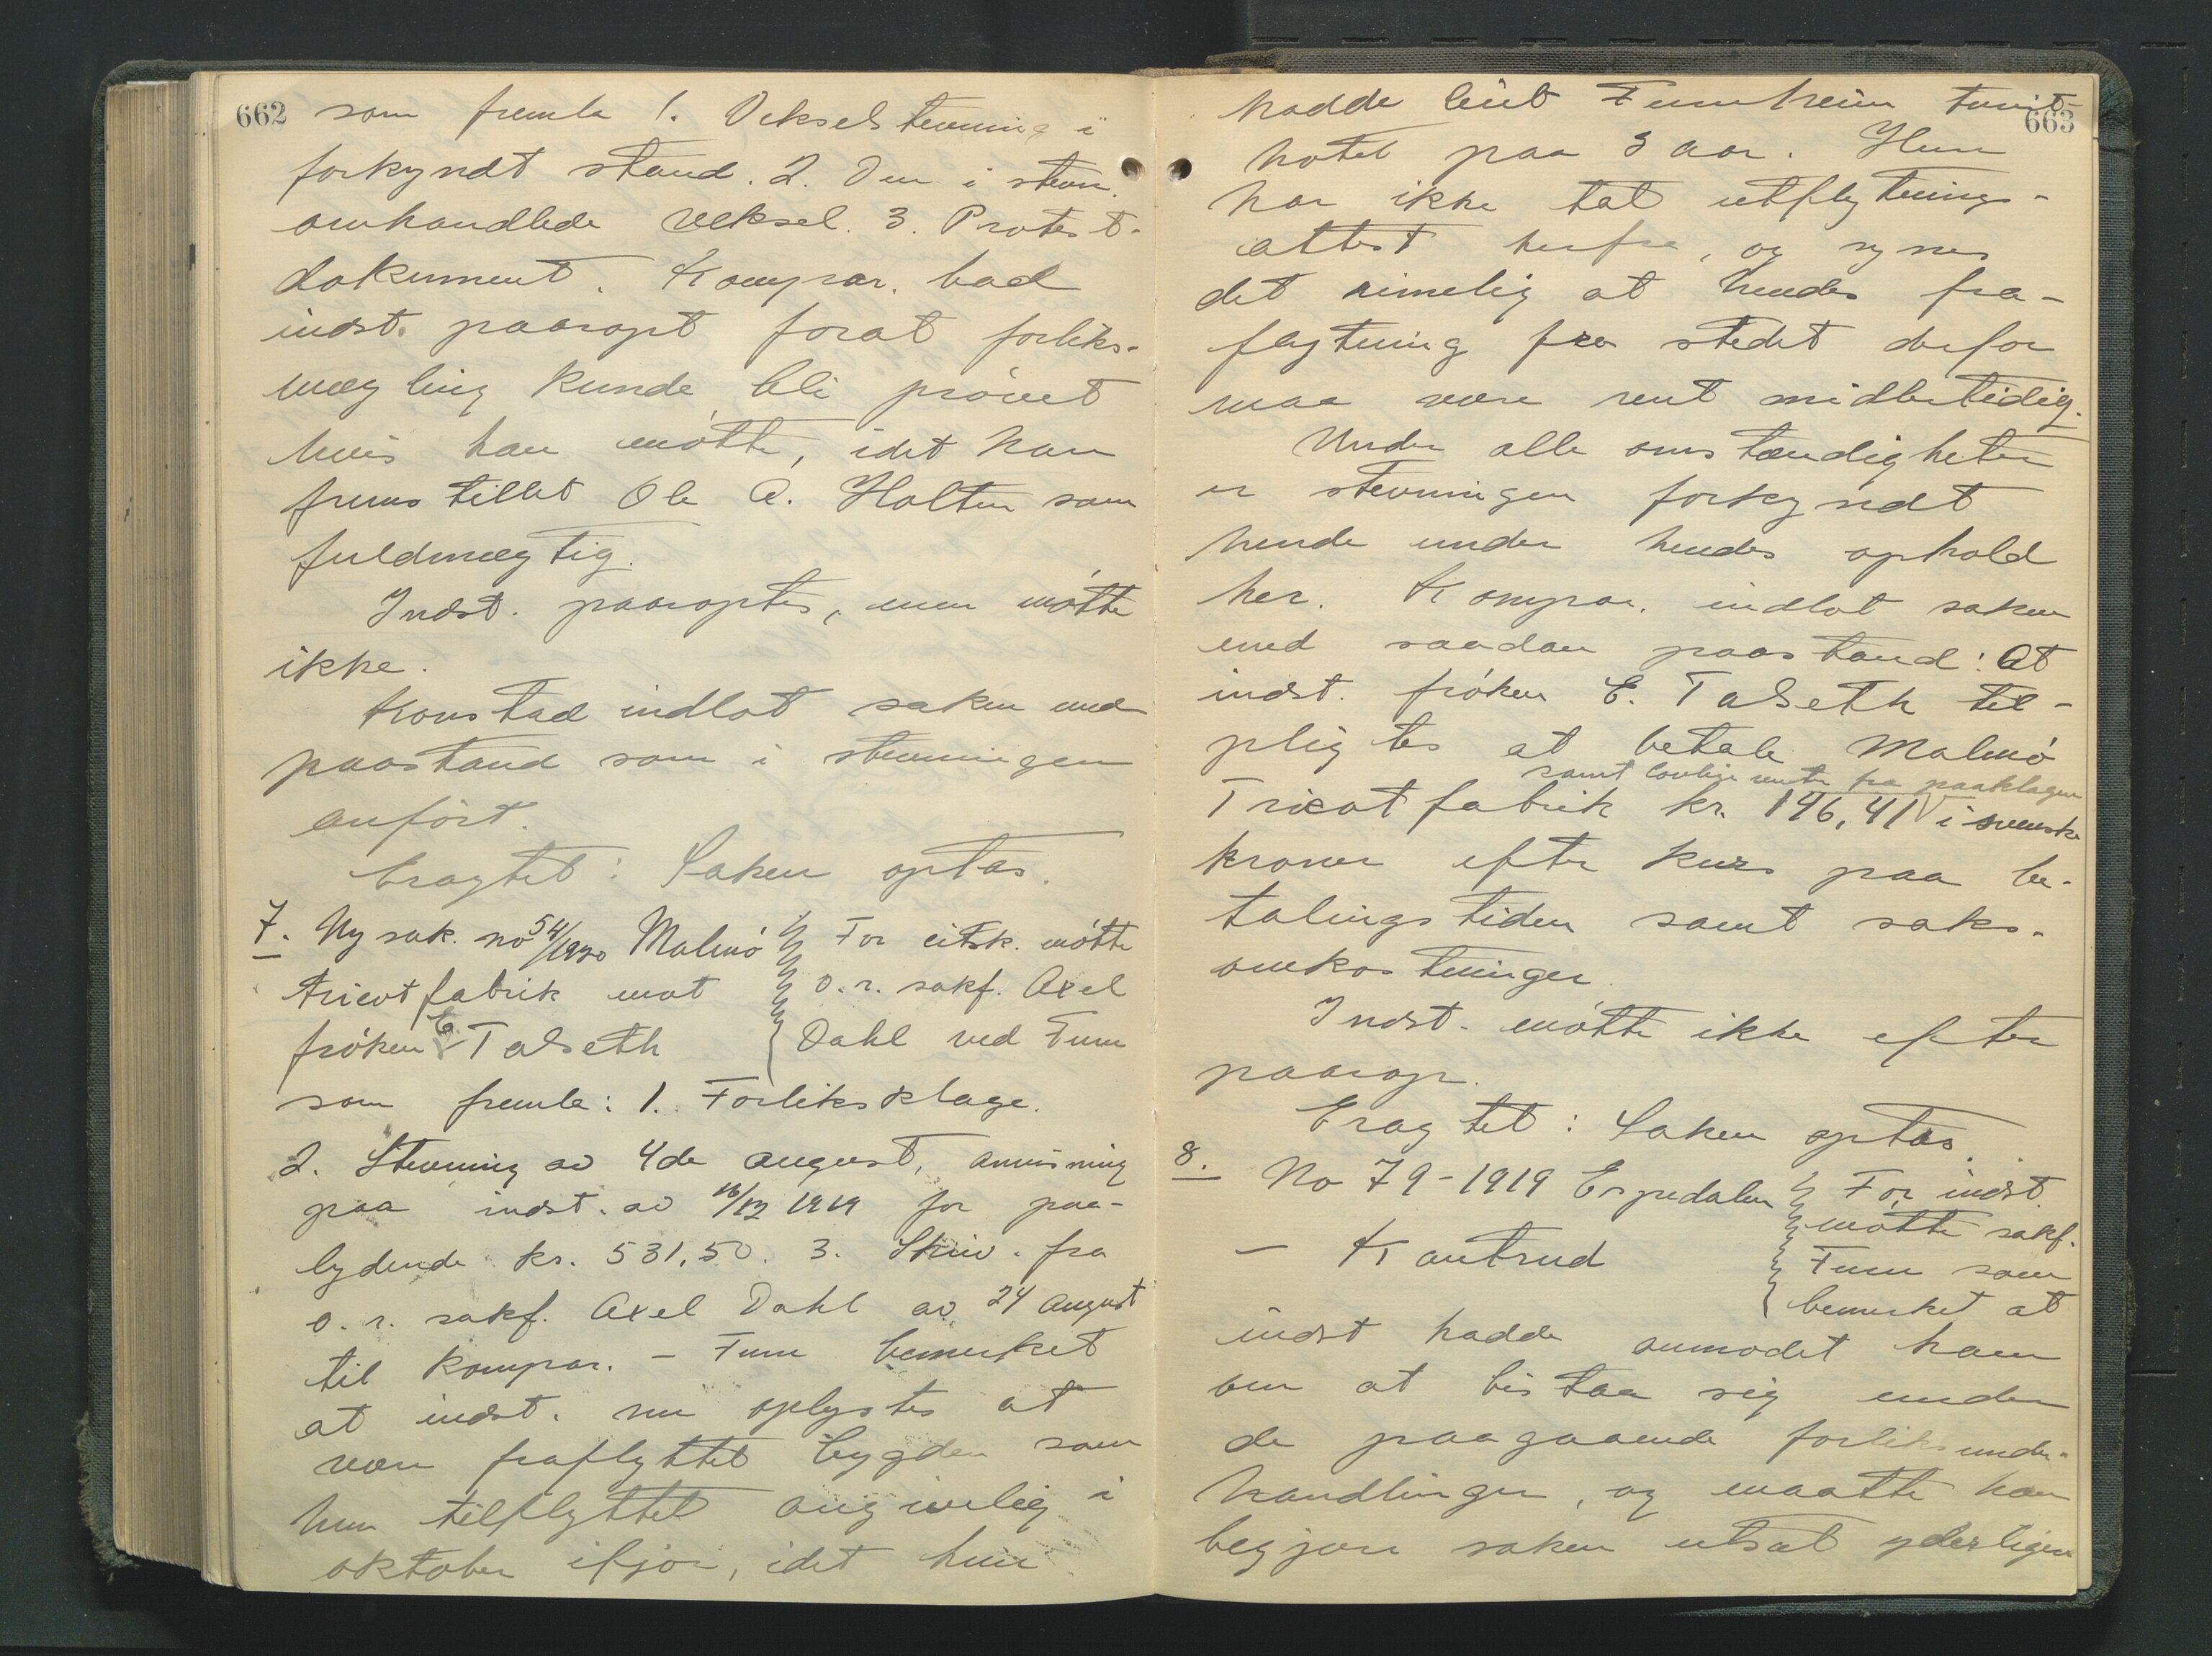 662
som fremla 1. Vekselstevning i
forkyndt stand. 2. Den i stevn.
omhandlede veksel. 3. Protest-
dokument. Kompar. bad
indst. paaropt forat forliks-
mægling kunde bli prövet
hvis han mötte, idet han
fremstillet Ole A. Holten som
fuldmægtig.
Indst. paaroptes, men mötte
ikke.
Konstad indlot saken med
paastand som i stevningen
anfört.
Eragtet: Saken optas.
7. Ny sak. no 54/1920 Malmö
Tricotfabrik mot
fröken E. Talseth
For citsk. mötte
o. r. sakf. Axel
Dahl ved Furu
som fremla: 1. Forliksklage.
2. Stevning av 4de august, anvisning
paa indst. av 16/12 1919 for paa-
lydende kr. 531,50. 3. Skriv. fra
o. r. sakf. Axel Dahl av 24 august
til kompar. - Furu bemerket
at indst. nu oplystes at
være fraflyttet bygden som
hun tilflyttet angivelig i
oktober ifjor, idet hun
663
hadde leiet Furuheim turist-
hotel paa 3 aar. Hun
har ikke tat utflytnings-
attest herfra, og synes
det rimelig at hendes fra-
flytning fra stedet derfor
maa være rent midlertidig.
Under alle omstændigheter
er stevningen forkyndt
hende under hendes ophold
her. Kompar. indlot saken
med saadan paastand: At
indst. fröken E. Talseth til-
pligtes at betale Malmö
samt lovlige renter fra paaklagen
Tricotfabrik kr. 196,41 i svenske
kroner efter kurs paa be-
talingstiden samt saks-
omkostninger.
Indst. mötte ikke efter
paarop.
Eragtet: Saken optas.
8. No 79-1919 Espedalen
- Kantrud
For indst.
mötte sakf.
Furu som
bemerket at
indst hadde anmodet ham
om at bistaa sig under
de paagaaende forliksunder-
handlinger, og maatte han
begjære saken utsat yderligere